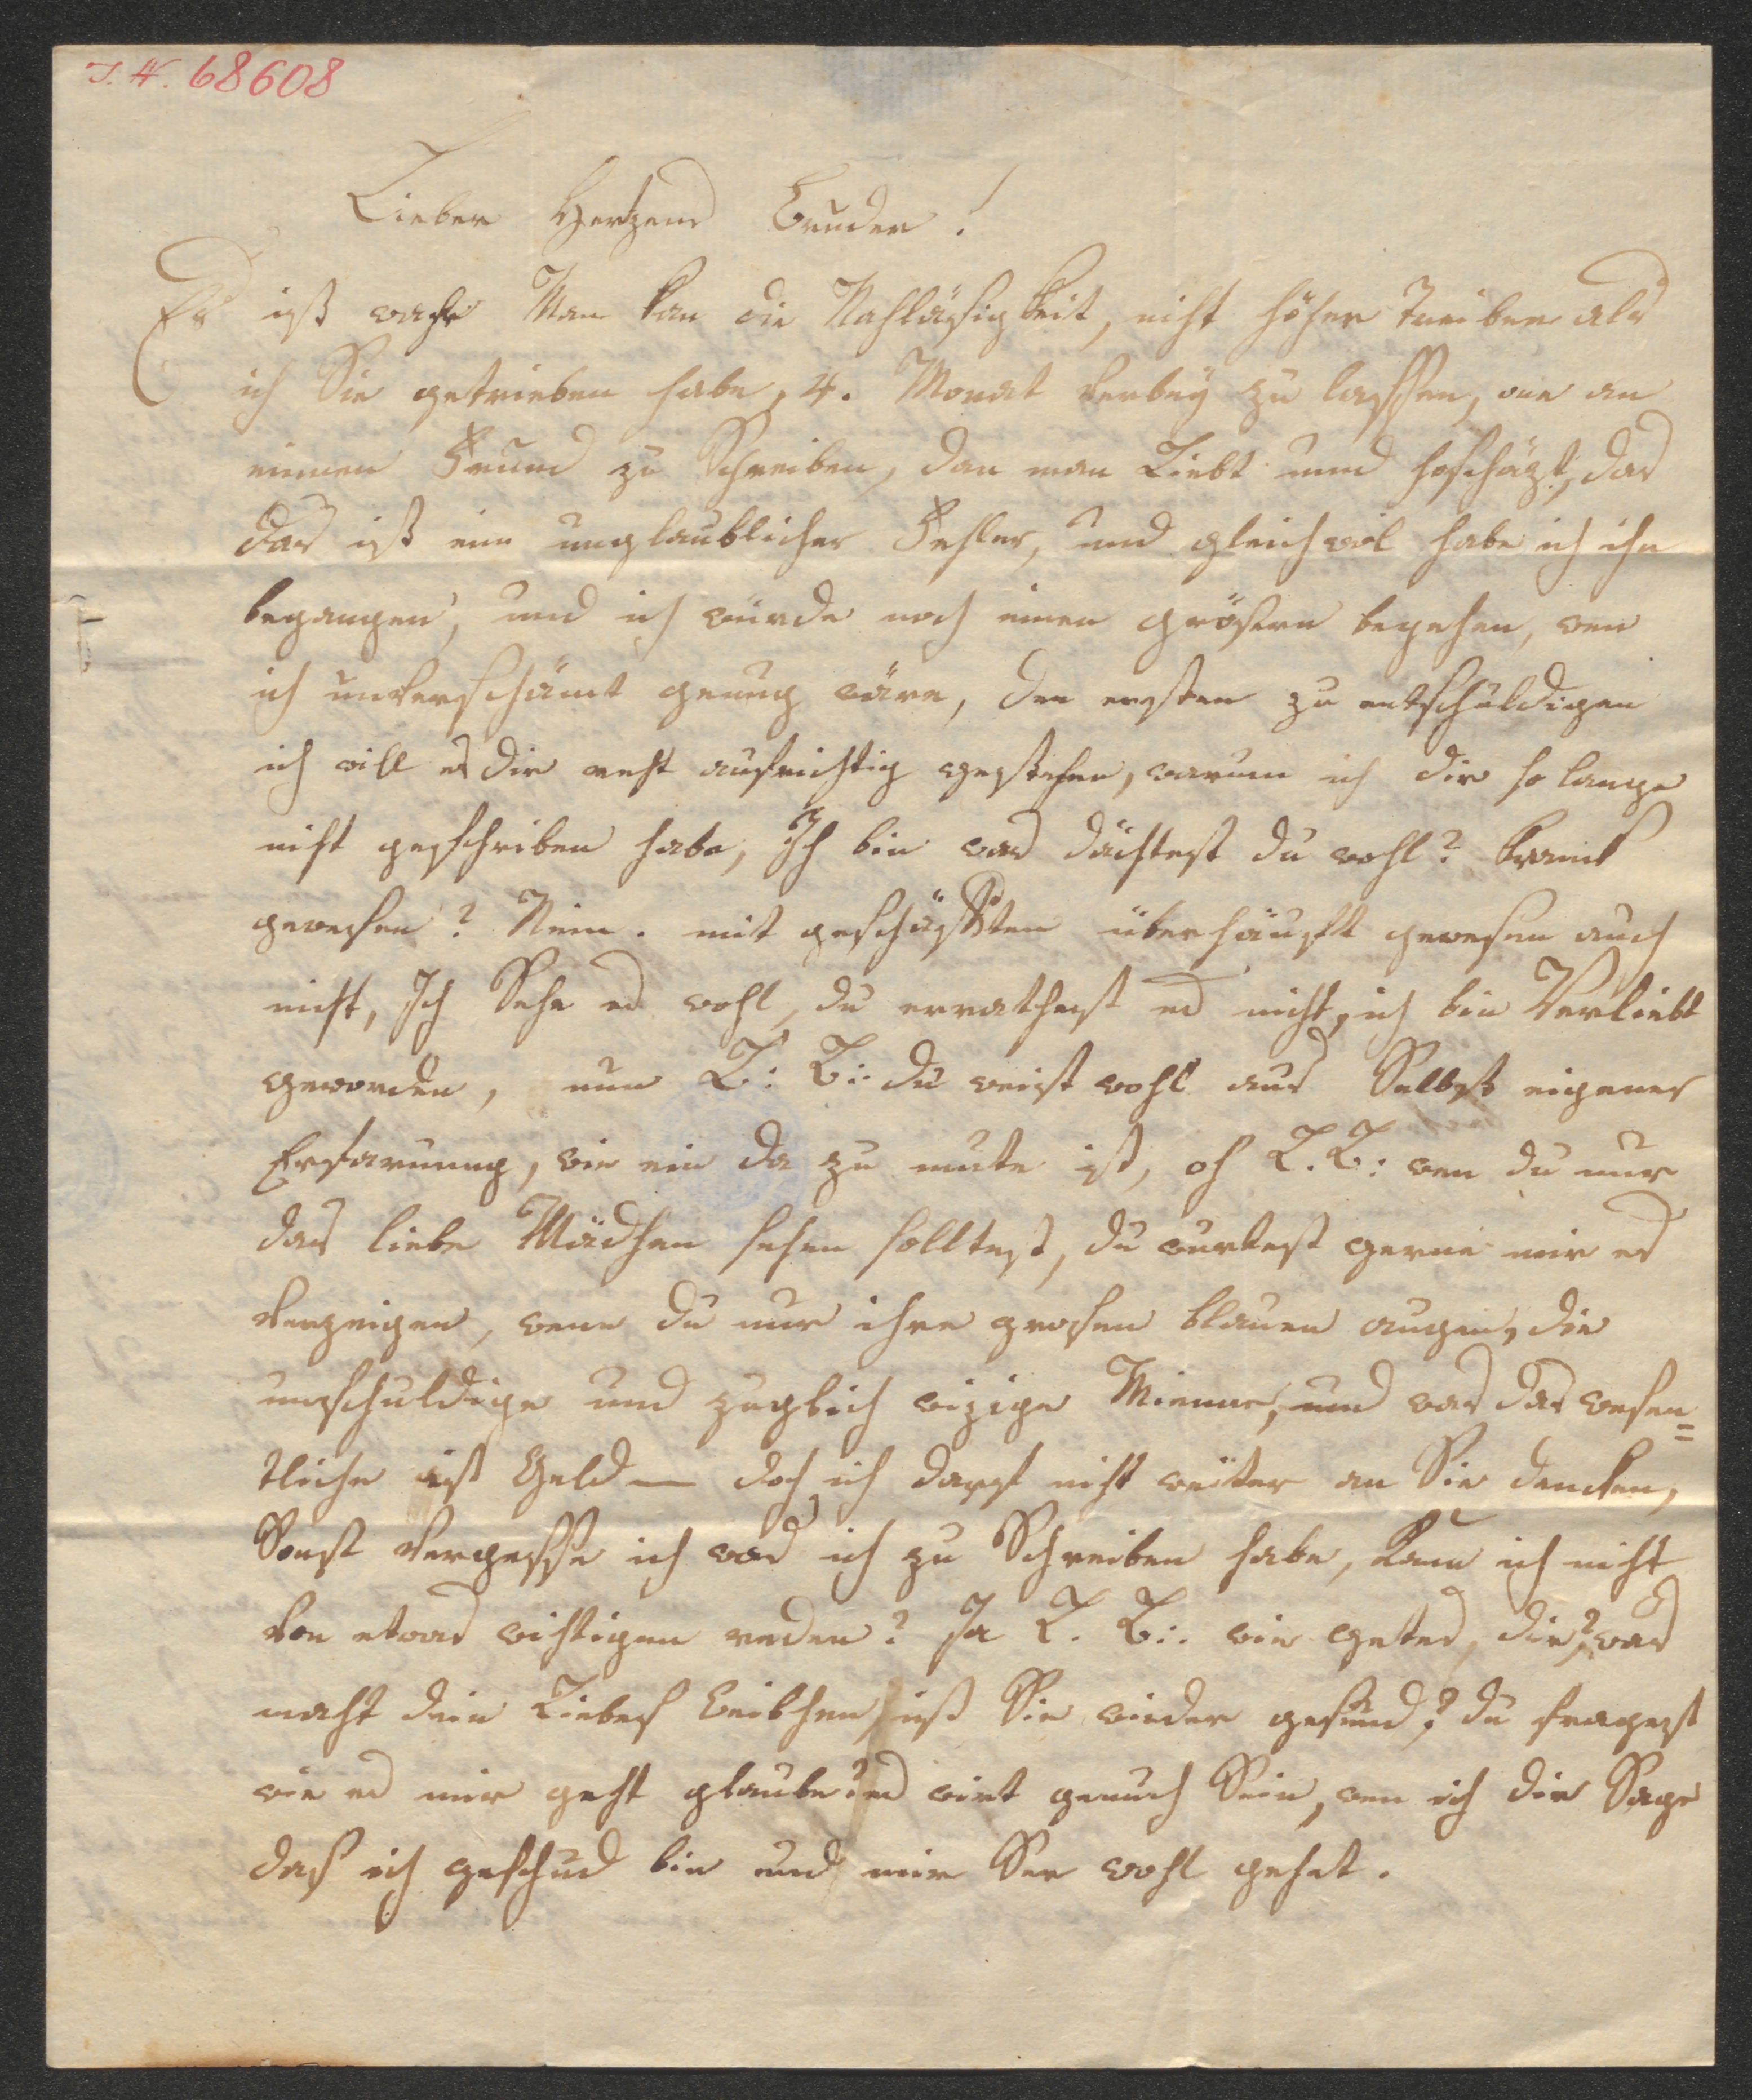 I. N. 68608
Lieber Hertzens Bruder!
Es ist wahr Man kan die Nachläsigkeit, nicht höher treiben als
ich Sie getrieben habe, 4. Monat verbeÿ zu lassen, one an
einnen Freund zu Schreiben, den man Liebt und hochschäzt, das
das ist ein unglaublicher Fehler, und gleichwol habe ich ihn
begangen, und ich würde noch einen grösern begehen, wen
ich unverschämt genug wäre, den ersten zu entschuldigen
ich will es dir recht aufrichtig gestehen, warum ich dir so lange
nicht geschrieben habe, Ich bin was dächtest du wohl? krank
gewesen? Nein. mit geschäfften überhäufft gewesen auch
nicht, Ich Sehe es wohl, du errathest es nicht, ich bin Verliebt
geworden, nun L: B: du weist wohl aus Selbst eigener
Erfarunng, wie ein da zu mute ist, oh L. B: wen du nur
das liebe Mädchen sehen solltest, du würdest gerne mir es
verzeigen, wenn du nur ihre grosen blauen augen, die
unschuldige und zugleich wizige Mienne, und was das wesen=
tliche ist Geld — doch ich darf nicht weiter an Sie dencken,
Sonst vergesse ich was ich zu Schreiben habe, kann ich nicht
von etwas wichtigen reden? Ja L. B:. wie getes, dir? was
macht dein Liebes Weibchen, ist Sie wieder gesund? du fragest
wie es mir geht glaube es wirt genuch Sein, wen ich dir Sage
das ich geschund bin und mir Ser wohl gehet.